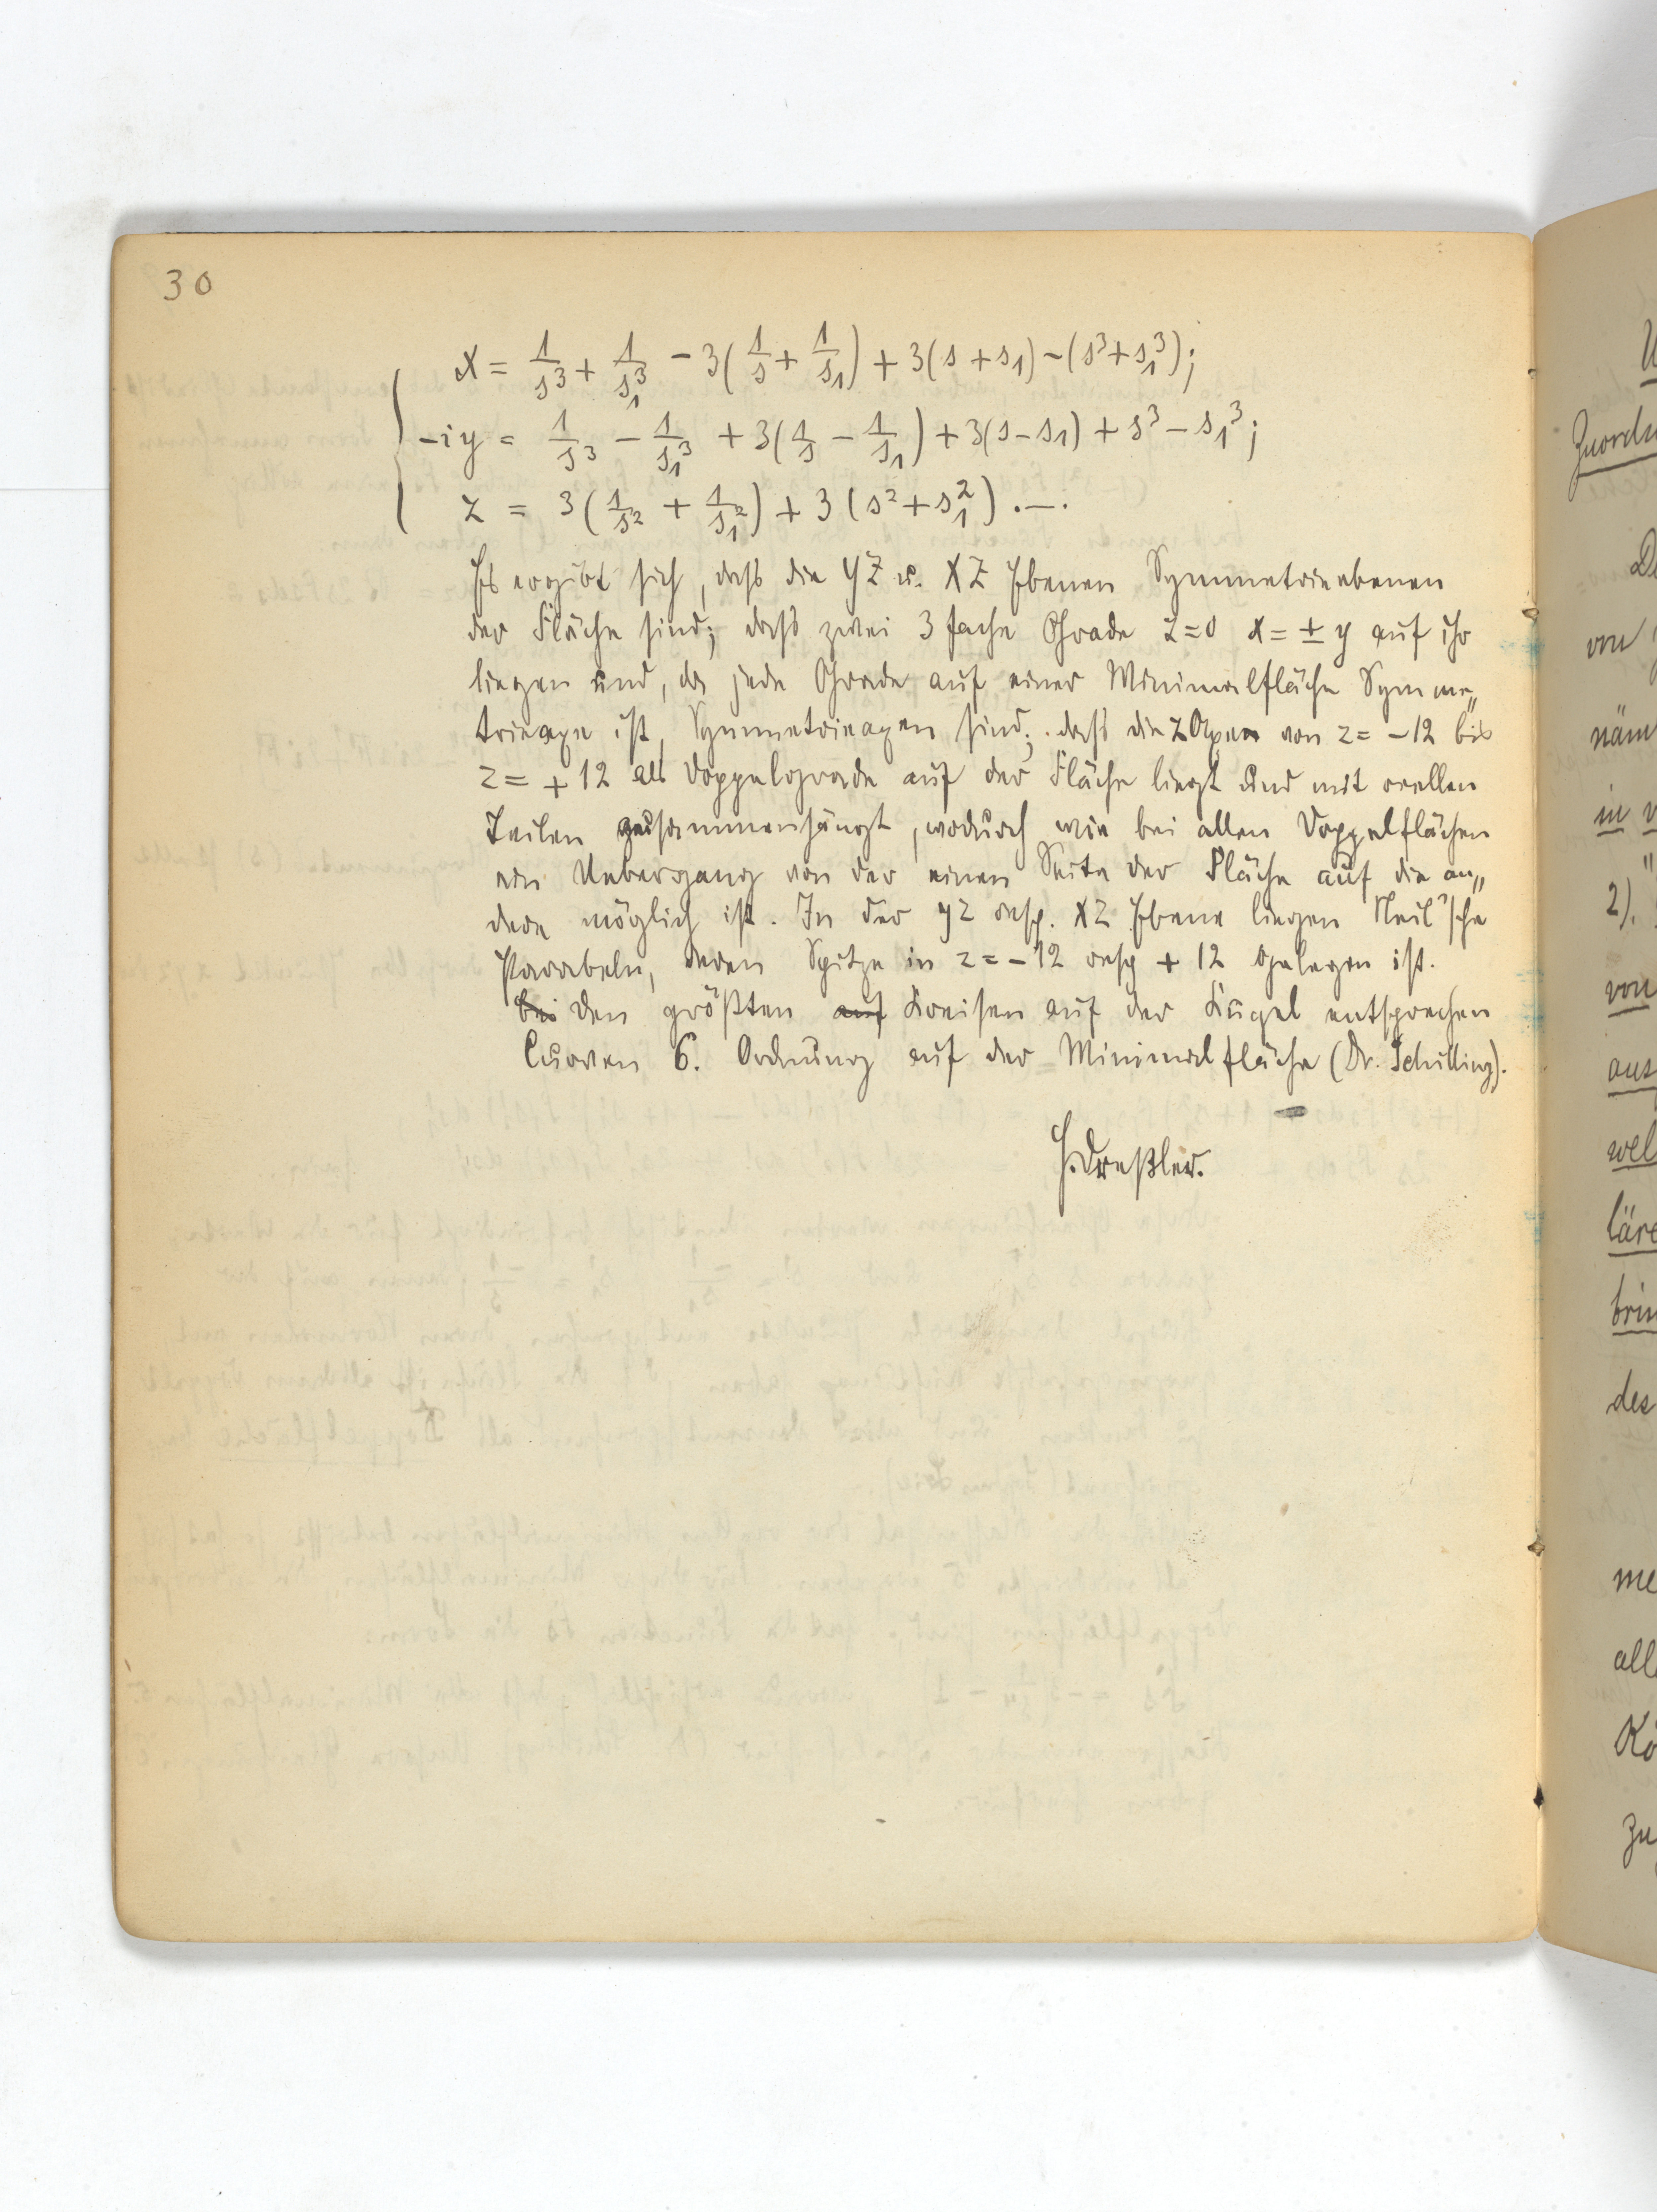 30
x = 1/s³ + 1/s₁³ − 3(1/s + 1/s₁) + 3(s + s₁) − (s³ + s₁³);
−iy = 1/s³ − 1/s₁³ + 3(1/s − 1/s₁) + 3(s − s₁) + s³ − s₁³;
z = 3(1/s² + 1/s₁²) + 3(s² + s₁²).—.
Es ergibt sich, daß die YZ u. XZ Ebenen Symmetrieebenen
der Fläche sind; daß zwei 3 fache Grade z=0 x=±y auf ihr
liegen und, da jede Grade auf einer Minimalfläche Symme„
trieaxe ist, Symmetrieaxen sind; daß die z Axe von z = −12 bis
z = +12 als Doppelgrade auf der Fläche liegt und mit reellen
Teilen zusammenhängt, wodurch wie bei allen Doppelflächen
ein Uebergang von der einen Seite der Fläche auf die an„
dere möglich ist. In der yz resp. xz Ebene liegen Neil'sche
Parabeln, deren Spitze in z = −12 resp + 12 gelegen ist.
bei den größten auf Kreisen auf der Kugel entsprechen
Curven 6. Ordnung auf der Minimalfläche (Dr. Schilling).
H. Dreßler.
U
Zuordn
D
von
näm
in v
2).
von
aus
wel
läre
brin
des
me
all
Kö
zu